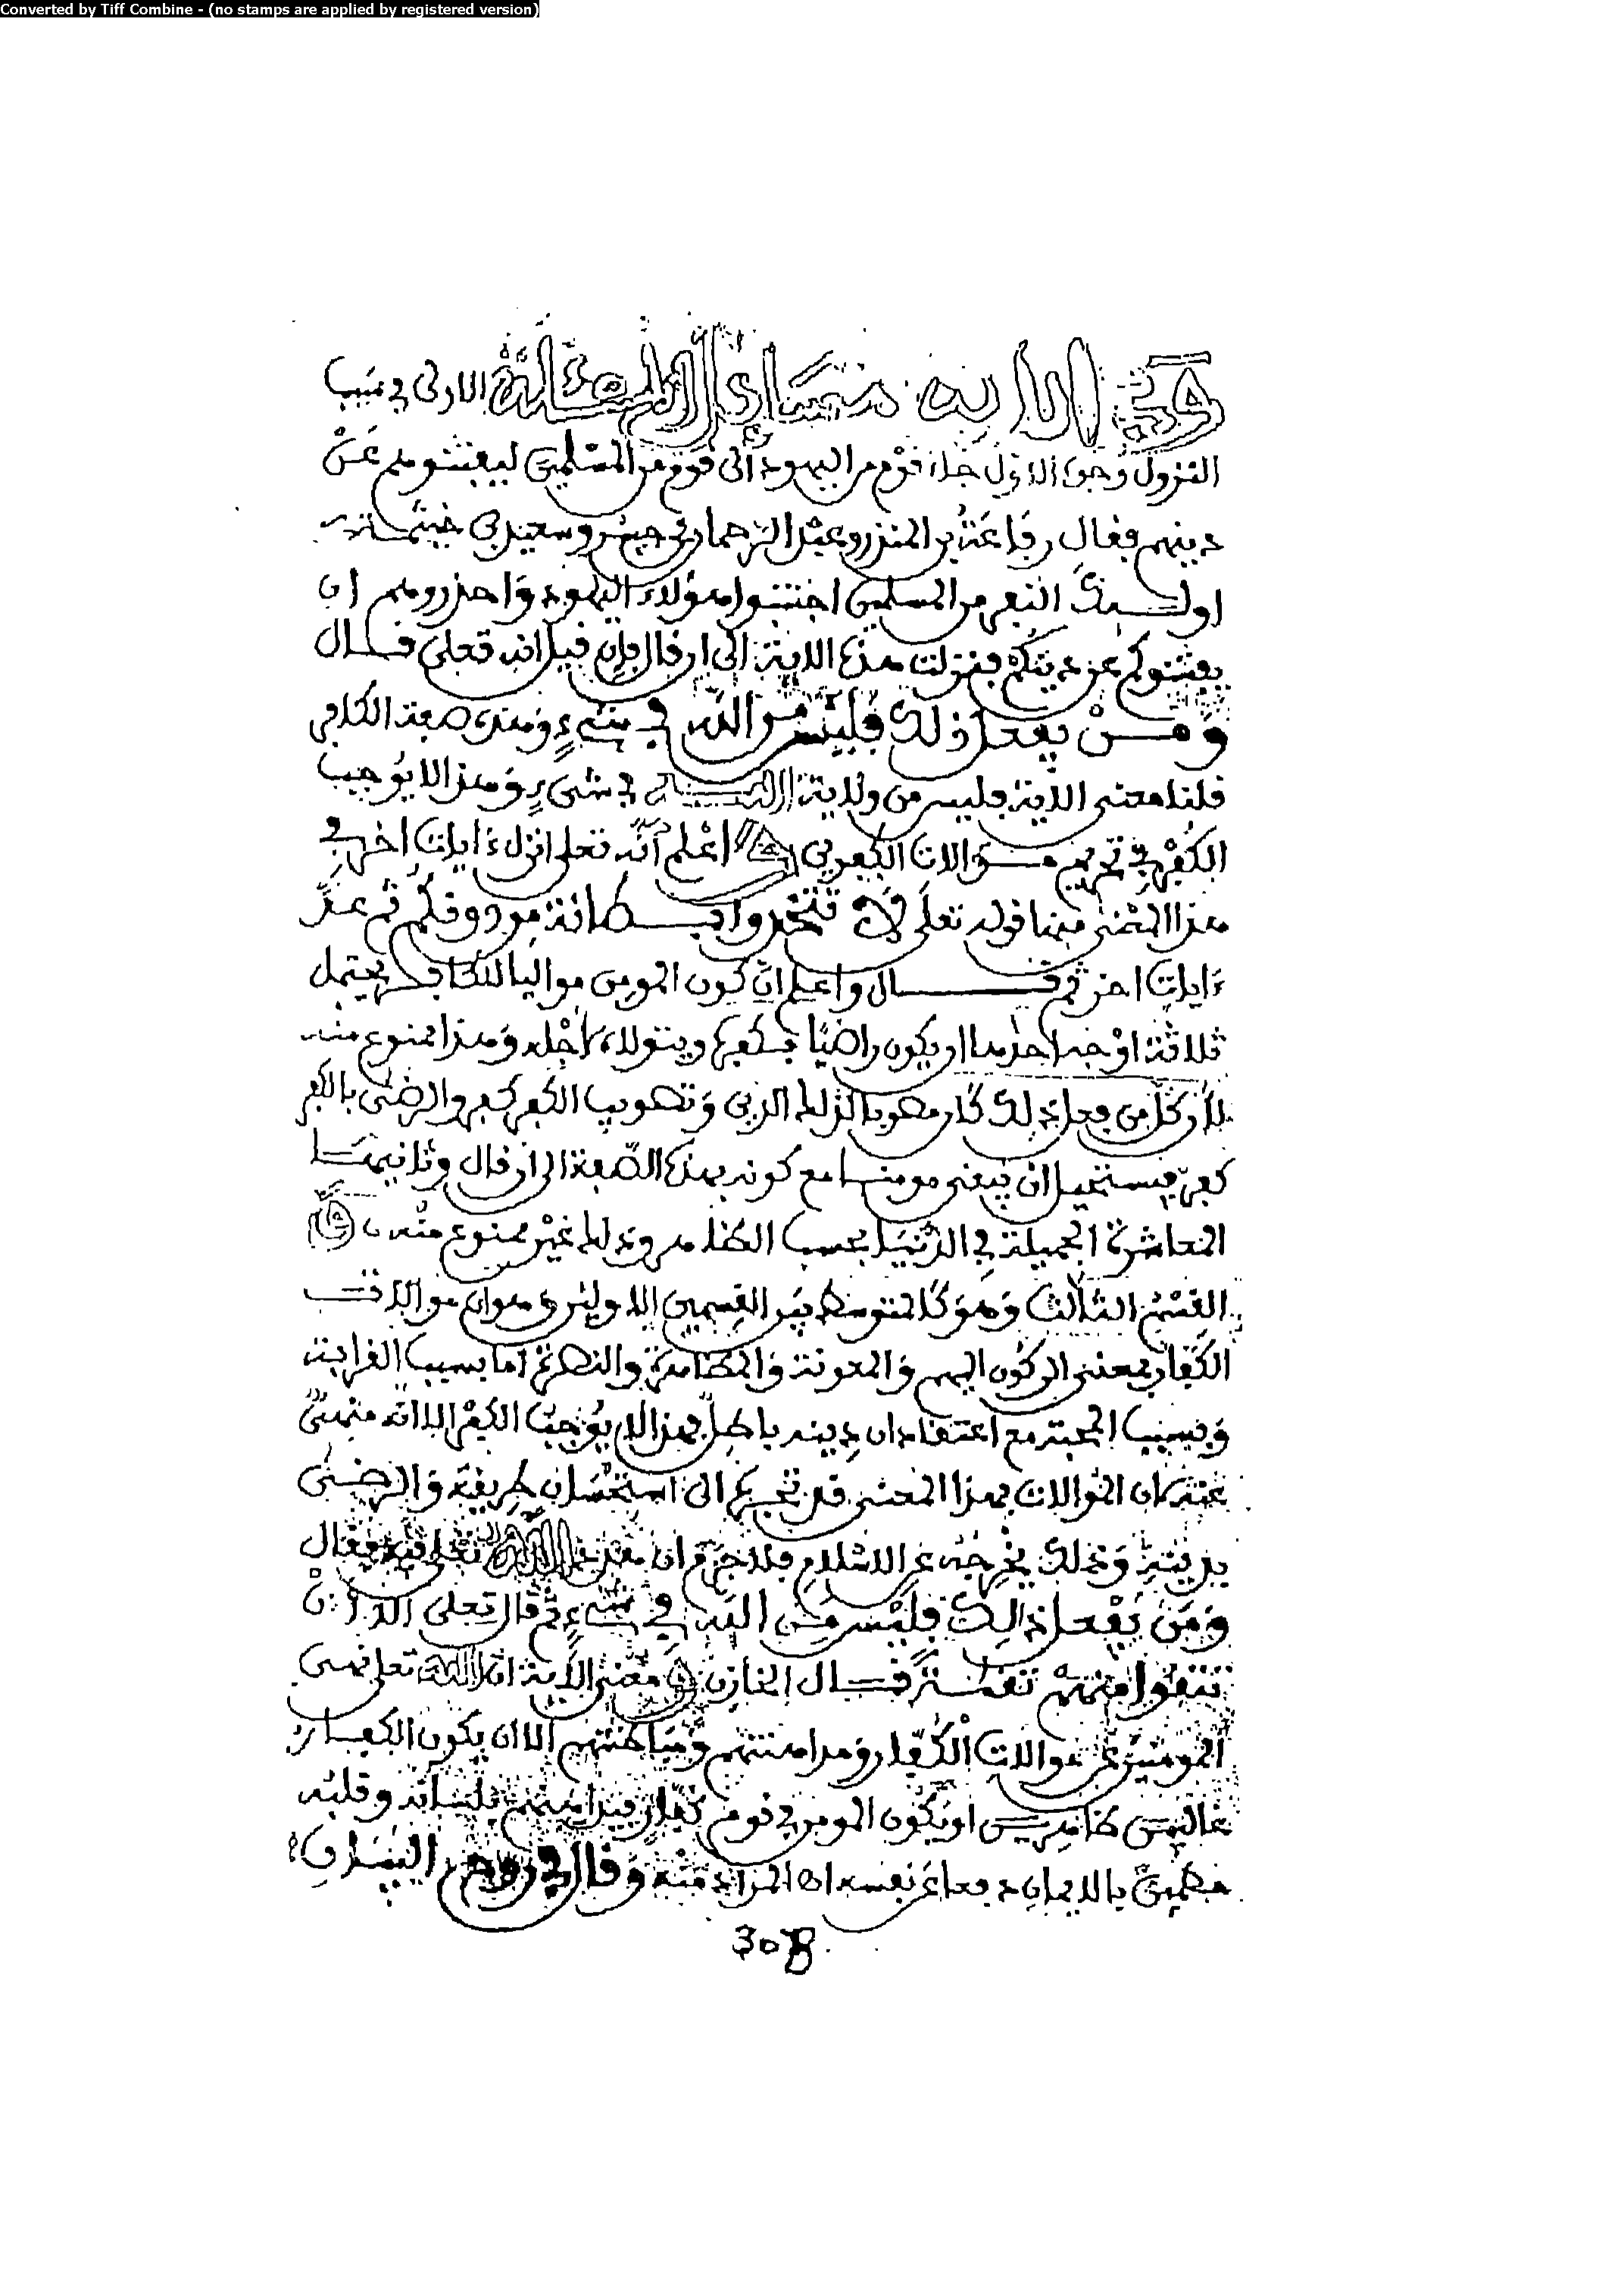 Converted by Tiff Combine - (no stamps are applied by registered version)
وفي الاية مسائل المسئلة الاولى في سبب
النزول وجوه الاول جاء قوم من اليهود الى قوم من المسلمين ليفتنوهم عن
دينهم فقال رفاعة بن المنذر وعبد الرحمان بن جبير وسعيد بن خيثمة
اولئك النفر من المسلمين اجتنبوا هؤلاء اليهود واحذروهم ان
يفتنوكم عن دينكم فنزلت هذه الاية الى ان قال فإن قيل انه تعلى قال
ومن يفعل ذلك فليس من الله في شيء وهذه صفة الكافر
قلنا معنى الاية فليس من ولاية الله في شيء وهذا لا يوجب
الكفر في تحريم موالات الكفرين اعلم أنه تعلى انزل ءايات اخر في
هذا المعنى منها قوله تعلى لا تتخذوا بطانة من دونكم ثم عد
ءايات اخر ثم قال واعلم ان كون المومن مواليا للكافر يحتمل
ثلاثة اوجه احدها ان يكون راضيا بكفره ويتولاه لاجله وهذا ممنوع منه
لأن كل من فعل ذلك كان مصوبا لذلك الدين وتصويب الكفر كفر والرضى بالكفر
كفر فيستحيل ان يبقى مومنا مع كونه بهذه الصفة الى ان قال وثانيها
المعاشرة الجميلة في الدنيا بحسب الظاهر وذلك غير ممنوع منه و
القسم الثالث وهو كالمتوسط بين القسمين الاولين هو ان موالات
الكفار بمعنى الركون اليهم والمعونة والمظاهرة والنصرة اما بسبب القرابة
وبسبب المحبة مع اعتقاد ان دينه باطل فهذا لا يوجب الكفر الا انه منهي
عنه لان الموالات بهذا المعنى قد تجره الى استحسان طريقه والرضى
بدينه وذلك يخرجه عن الاسلام فلا جرم ان هدد الله تعلى فيه فقال
ومن يفعل ذلك فليس من الله في شيء ثم قال تعلى الا ان
تتقوا منهم تقية قال الخازن معنى الاية ان الله تعلى نهى
المومنين عن موالات الكفار ومداهنتهم ومباطنتهم الا ان يكون الكفار
غالبين ظاهرين او يكون المومن في قوم كفار فيداهنهم بلسانه وقلبه
مطمئن بالايمان دفعا عن نفسه اه المراد منه وقال في روح البيان
308